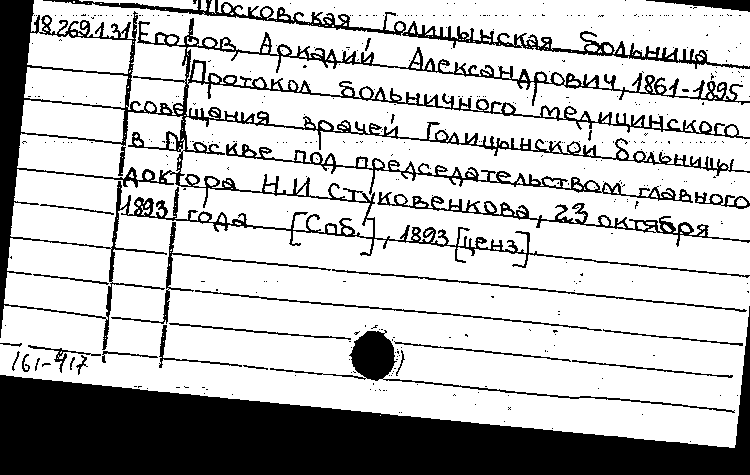 Московская Голицынская больница
18.269.1.31 Егоров, Аркадий Александрович, 1861-1895
Протокол больничного медицинского
совещания врачей Голицынской больницы
в Москве под председательством главного
доктора Н.И Стуковенкова, 23 октября
1893 года. [Спб.], 1893 [ценз.].
161-417